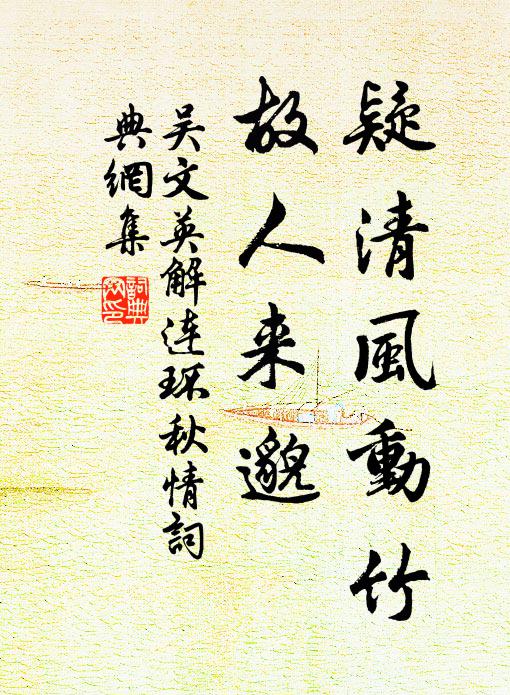 疑清風動竹
故人来邈
吴文英解连环秋情詞
典網集
詞典
网印